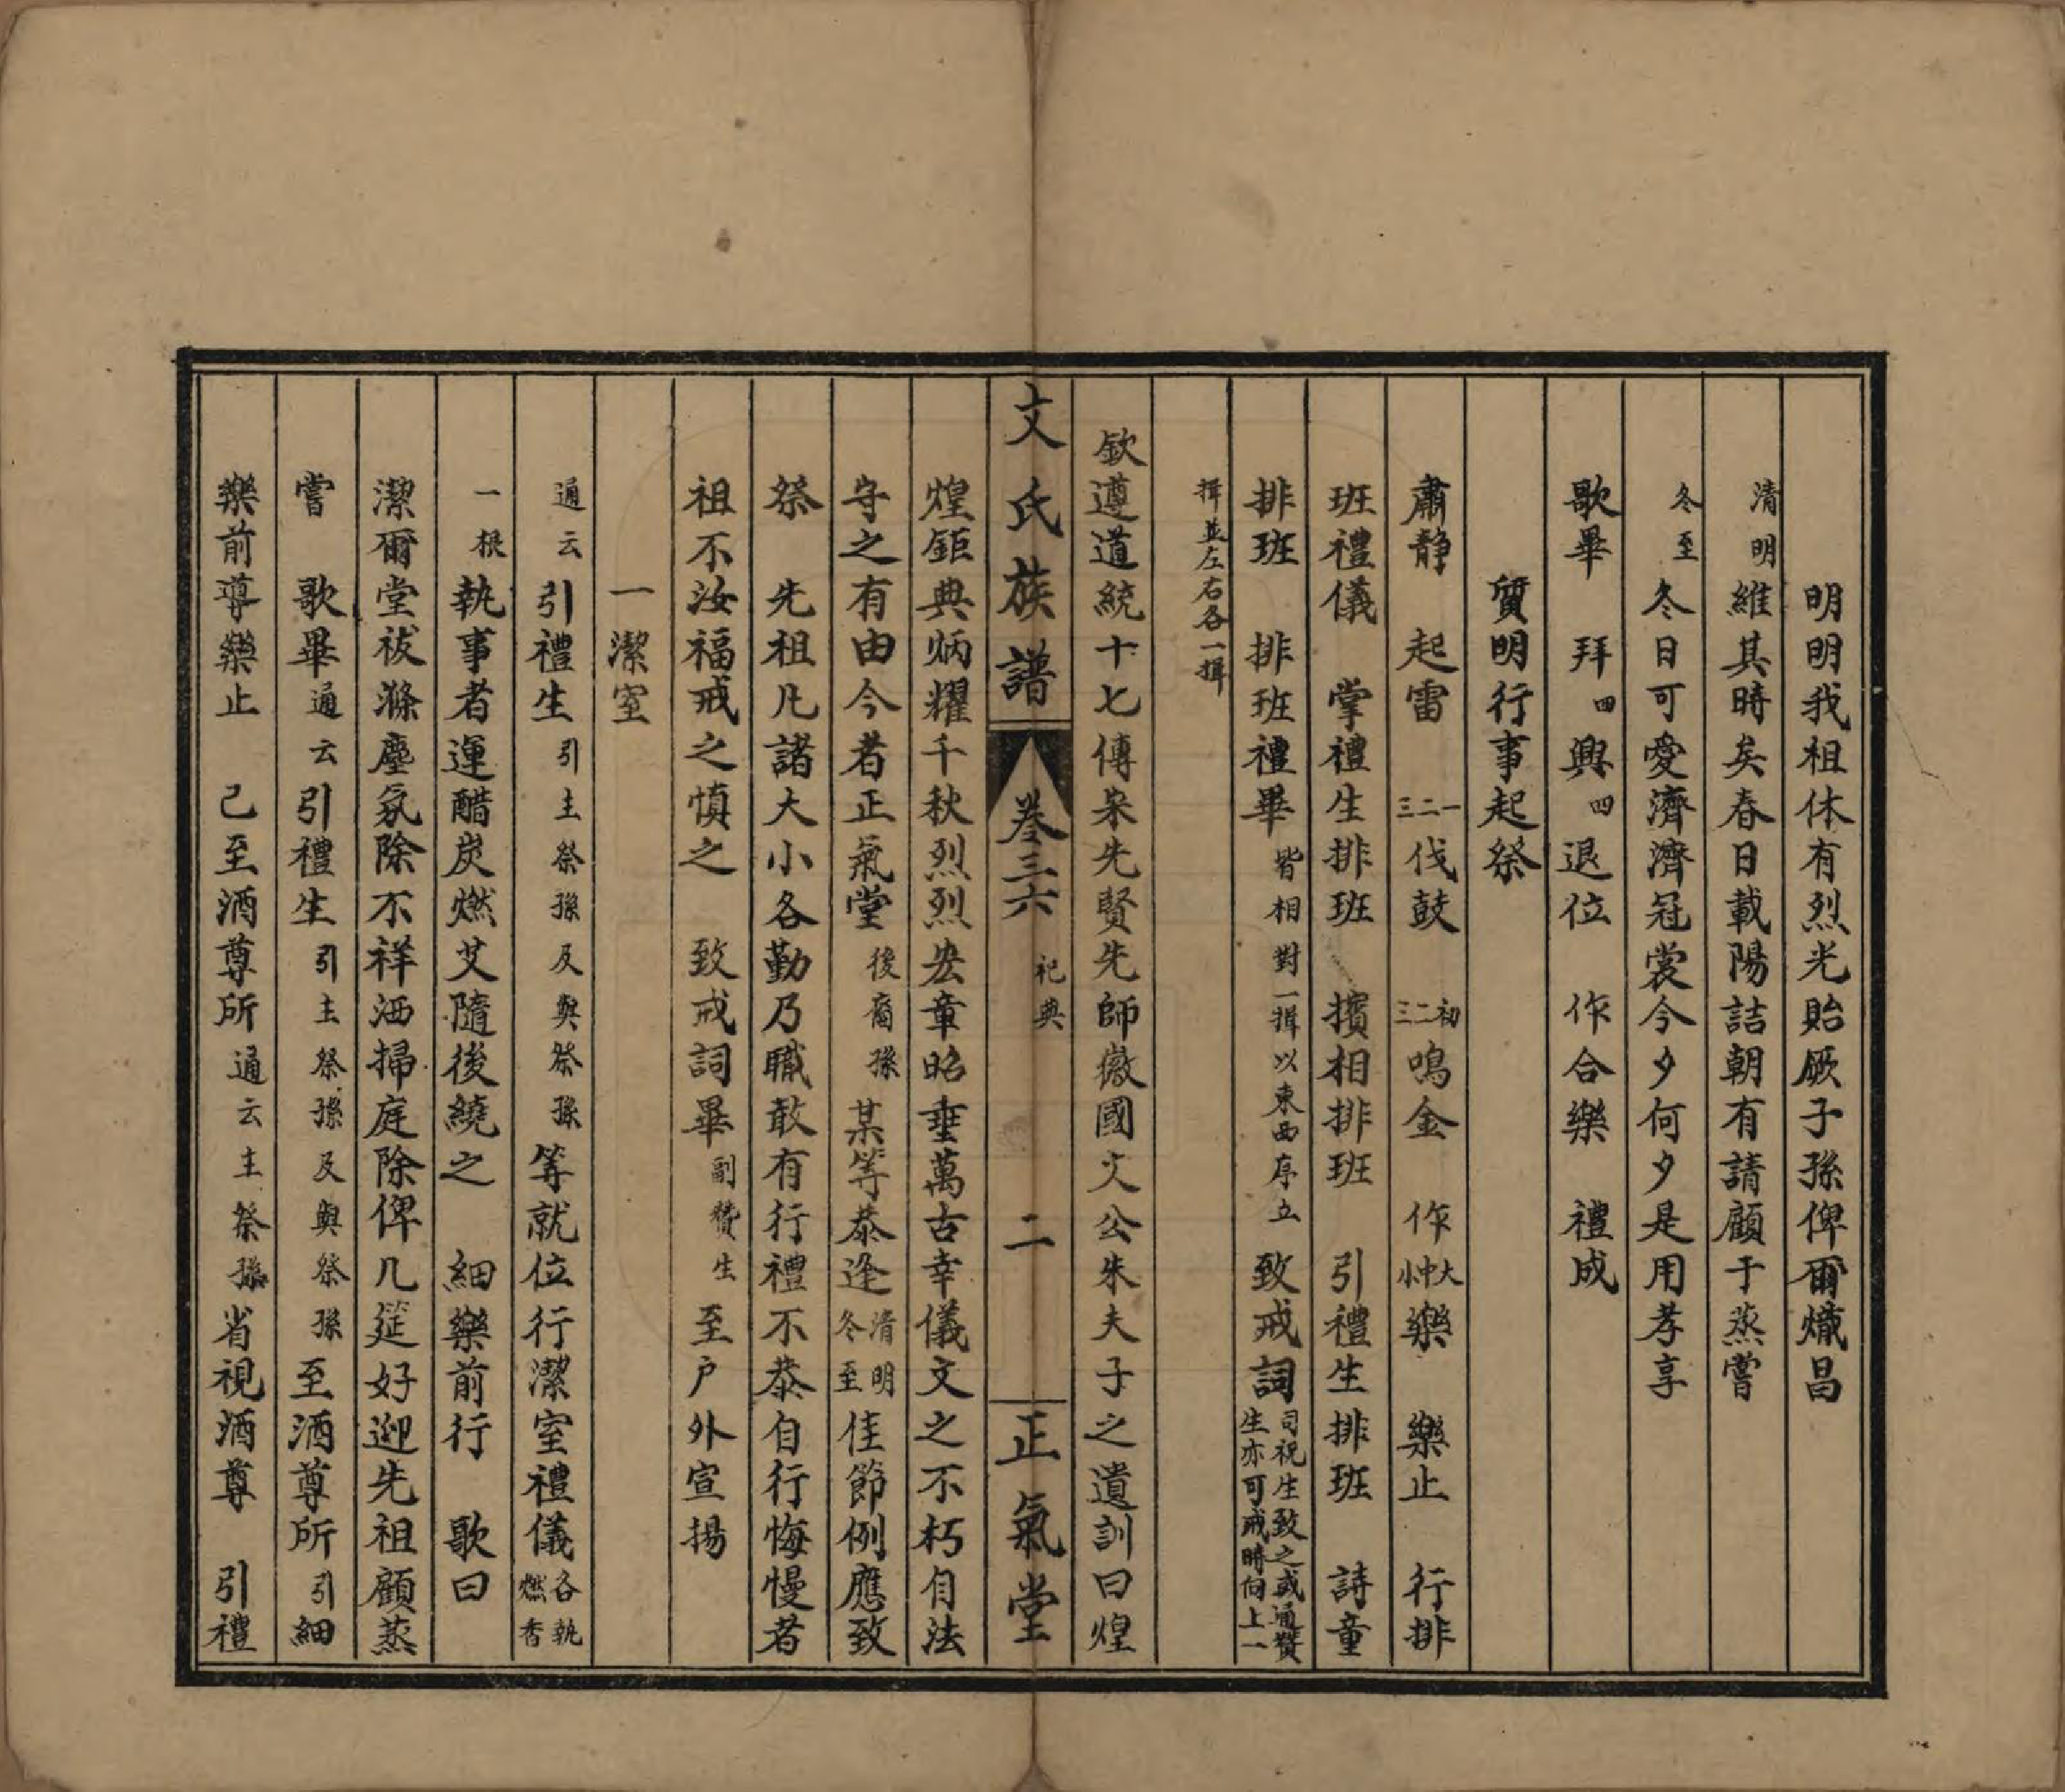 明明我祖休有烈光貽厥子孫俾爾熾昌
清明維其時矣春日載陽詰朝有請顧于蒸嘗
冬至冬日可愛濟濟冠裳今夕何夕是用孝享
歌畢 拜四興四退位 作合樂 禮成
質明行事起祭
肅静 起雷 一二三伐鼓 初二三鳴金 作大仲小樂 樂止 行排
班禮儀 掌禮生排班 擯相排班 引禮生排班 詩童
排班 排班禮畢皆相對一揖以東西序立致戒詞司祝生致之或通贊生亦可戒時向上一
揖並左右各一揖
欽遵道統十七傳宋先賢先師徽國文公朱夫子之遺訓曰煌
文氏族譜 卷三六 祀典 二 正氣堂
煌鉅典炳耀千秋烈烈宏章昭垂萬古幸儀文之不朽自法
守之有由今者正氣堂後裔孫某等恭逢清明冬至佳節例應致
祭 先祖凡諸大小各勤乃職敢有行禮不恭自行悔慢者
祖不汝福戒之慎之 致戒詞畢副贊生至户外宣揚
一潔室
通云引禮生引主祭孫及與祭孫等就位行潔室禮儀各執燃香
一根執事者運醋炭燃艾隨後繞之 細樂前行 歌曰
潔爾堂祓滌塵氛除不祥洒掃庭除俾几筵好迎先祖顧蒸
嘗 歌畢通云引禮生引主祭孫及與祭孫至酒尊所引細
樂前導樂止 已至酒尊所通云主祭孫省視酒尊 引禮